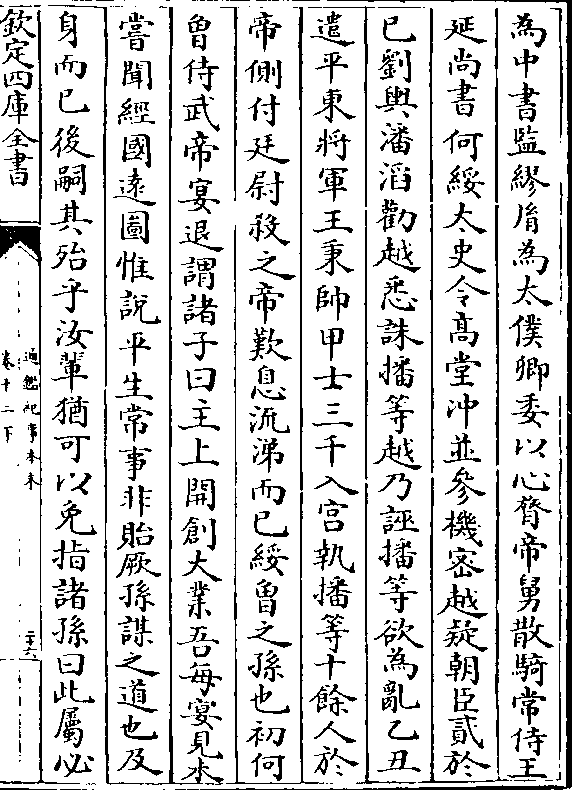 為中書監繆𦙍為太僕卿委以心膂帝舅散騎常侍王
延尚書何綏太史令髙堂冲並參機宻越疑朝臣貳於
已劉輿潘滔勸越悉誅播等越乃誣播等欲為亂乙丑
遣平東將軍王秉帥甲士三千入宫執播等十餘人於
帝側付廷尉殺之帝歎息流涕而已綏曾之孫也初何
曾侍武帝宴退謂諸子曰主上開創大業吾每宴見未
嘗聞經國逺圖惟說平生常事非貽厥孫謀之道也及
身而已後嗣其殆乎汝輩猶可以免指諸孫曰此屬必
欽定四庫全書
通鑑紀事本末
卷十二下
二十六